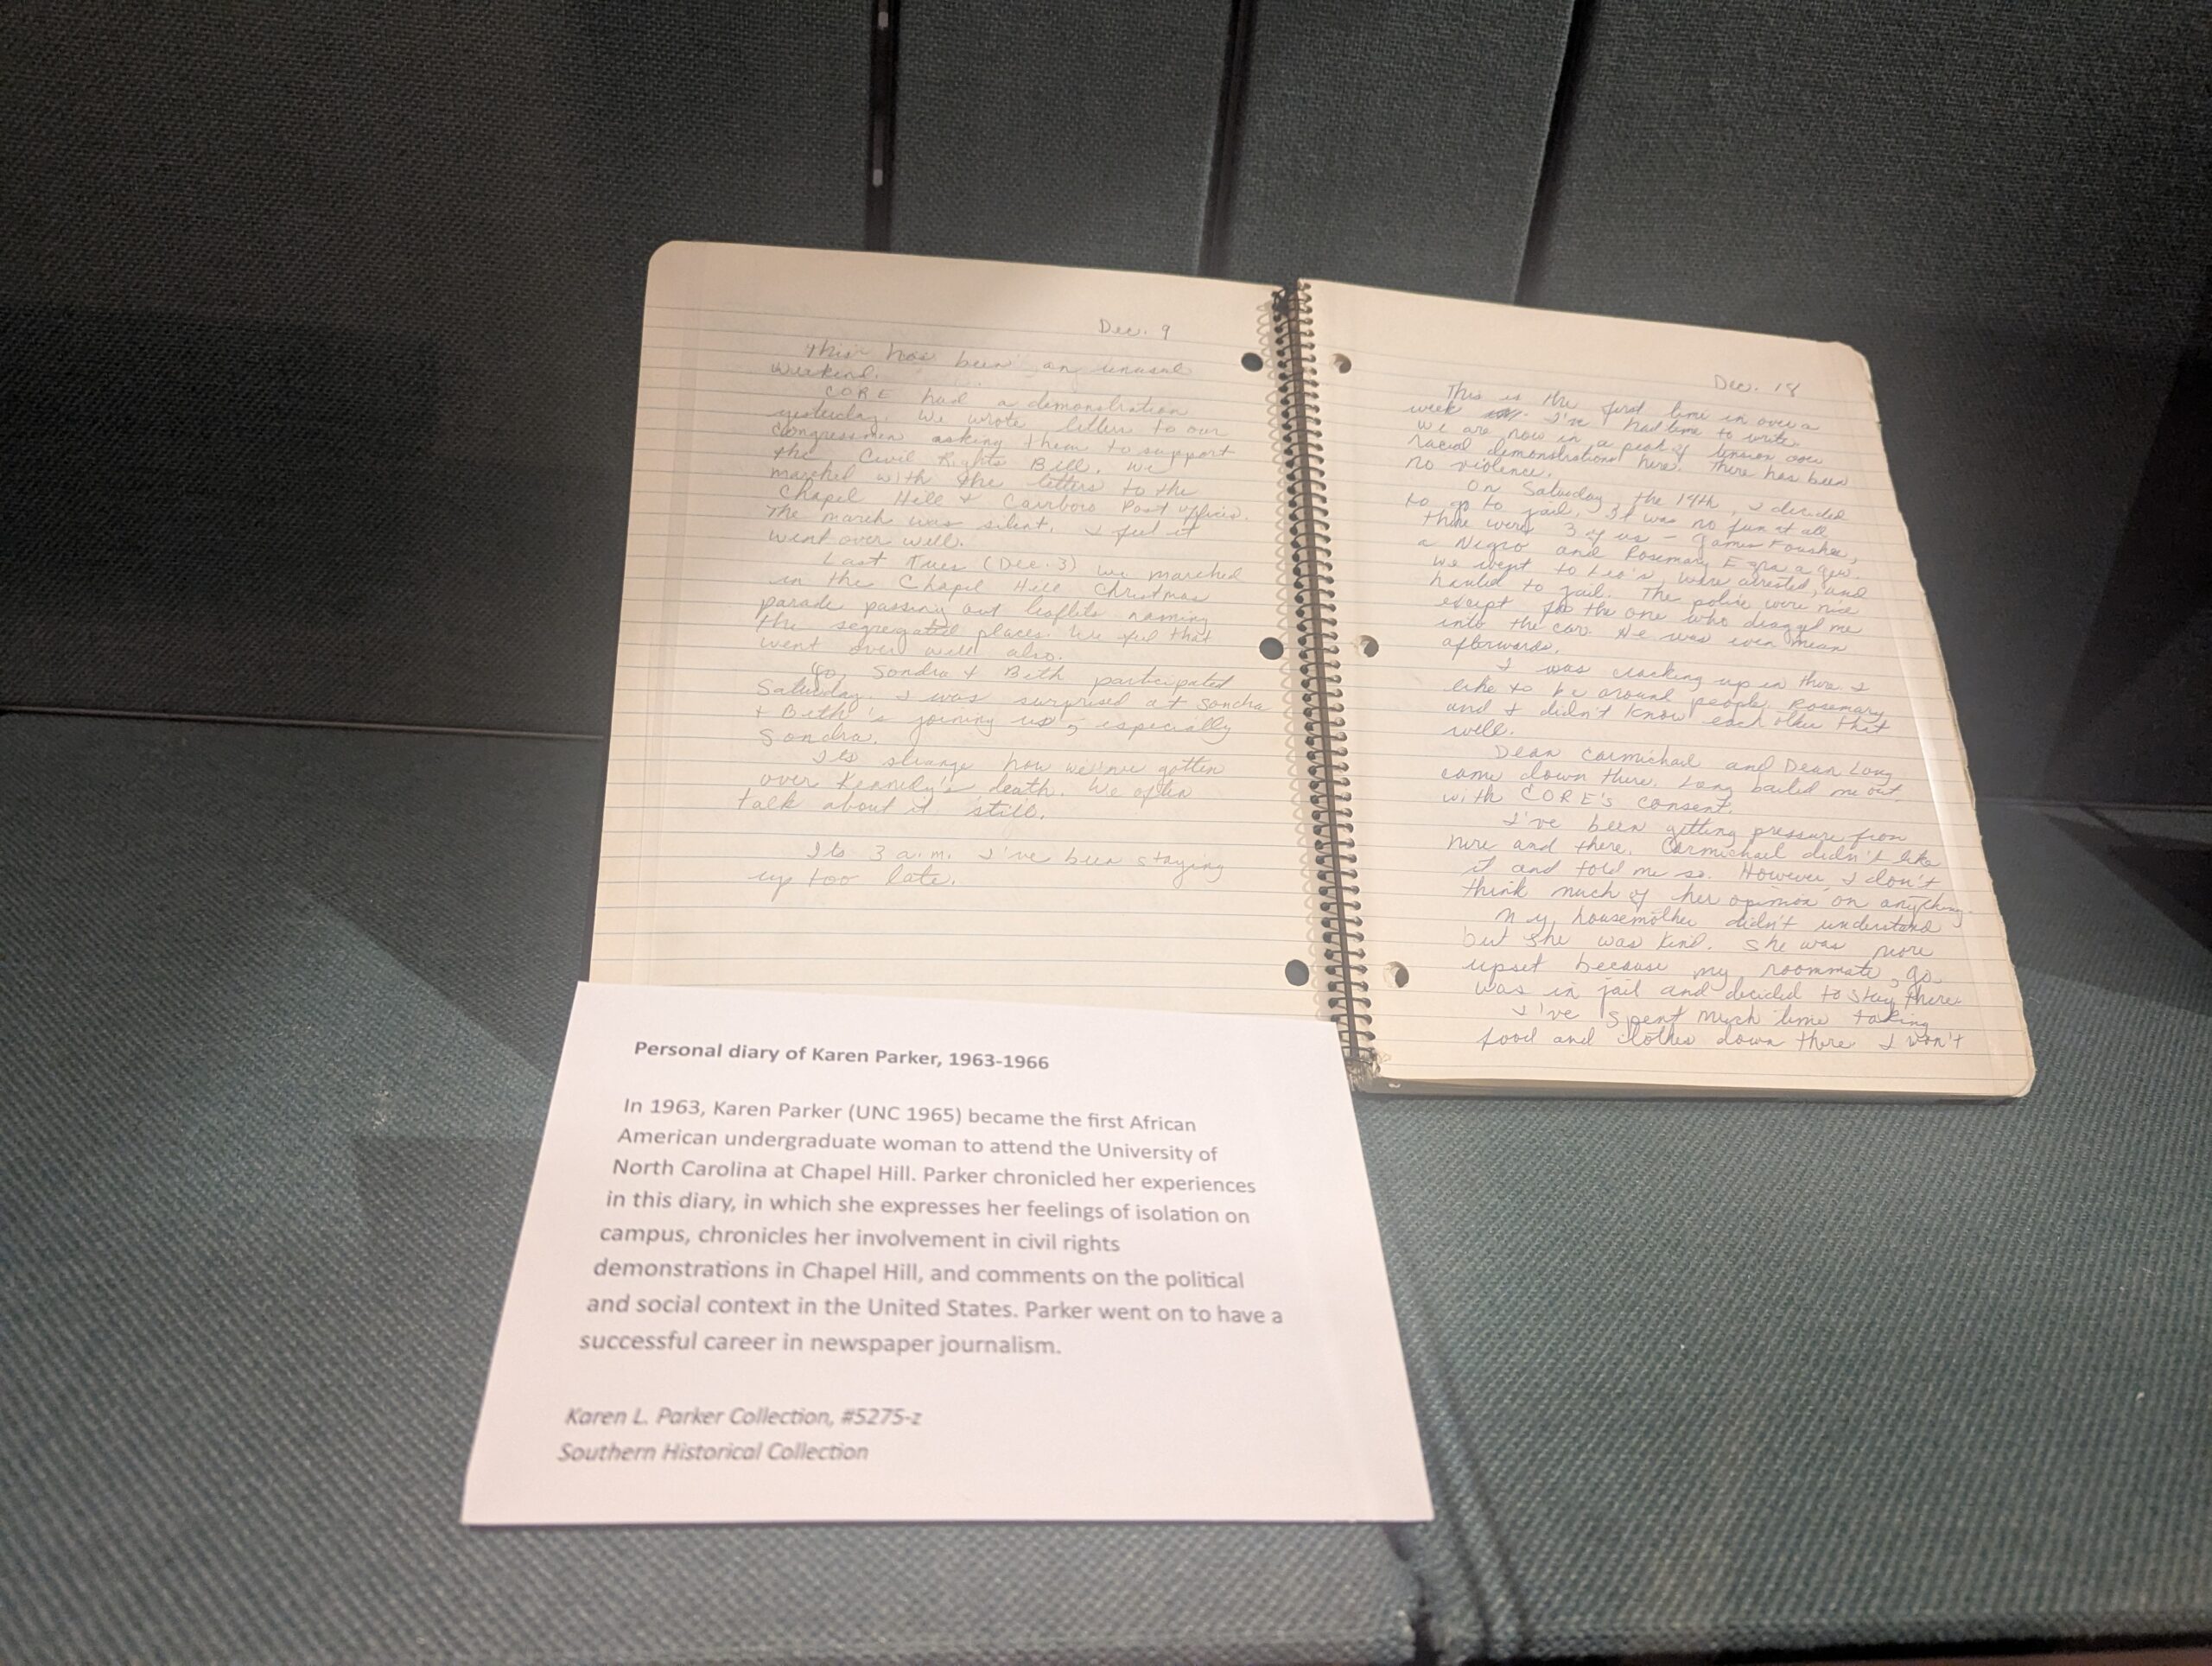 Dec. 9
This has been an unusual
weekend.
CORE had a demonstration
yesterday. We wrote letters to our
congressmen asking them to support
the Civil Rights Bill. We
marched with the letters to the
Chapel Hill & Carrboro Post offices.
The march was silent. I feel it
went over well.
Last Tues (Dec. 3) we marched
in the Chapel Hill Christmas
parade passing out leaflets naming
the segregated places. We feel that
went over well also.
Jo, Sondra & Beth participated
Saturday. I was surprised at Sondra
& Beth's joining us, especially
Sondra.
Its strange how we've gotten
over Kennedy's death. We often
talk about it still.
Its 3 a.m. I've been staying
up too late.
Dec. 18
This is the first time in over a
week I've had time to write.
We are now in a peak of tension over
racial demonstrations here. There has been
no violence.
On Saturday, the 14th, I decided
to go to jail. It was no fun at all
There were 3 of us – James Foushee,
a Negro and Rosemary Ezra a Jew.
We went to Leo's, were arrested, and
hauled to jail. The police were nice
except for the one who dragged me
into the car. He was even mean
afterwards.
I was cracking up in there. I
like to be around people. Rosemary
and I didn't know each other that
well.
Dean Carmichael and Dean Long
came down there. Long bailed me out
with CORE's consent.
I've been getting pressure from
here and there. Carmichael didn't like
it and told me so. However, I don't
think much of her opinion on anything.
My housemother didn't understand
but she was kind. She was more
upset because my roommate, Jo
was in jail and decided to stay there
I've spent much time taking
food and clothes down there. I won't
Personal diary of Karen Parker, 1963-1966
In 1963, Karen Parker (UNC 1965) became the first African
American undergraduate woman to attend the University of
North Carolina at Chapel Hill. Parker chronicled her experiences
in this diary, in which she expresses her feelings of isolation on
campus, chronicles her involvement in civil rights
demonstrations in Chapel Hill, and comments on the political
and social context in the United States. Parker went on to have a
successful career in newspaper journalism.
Karen L. Parker Collection, #5275-z
Southern Historical Collection